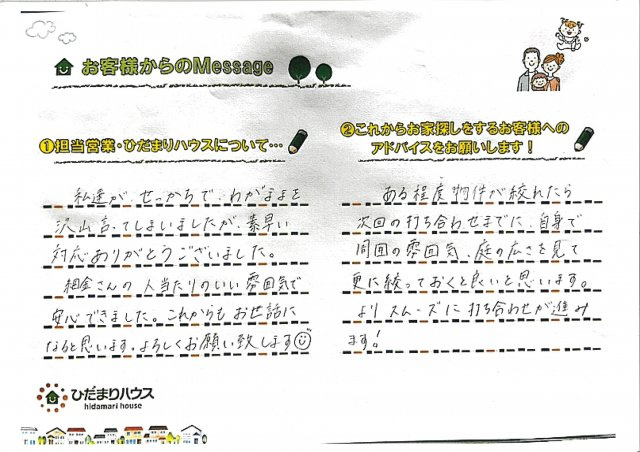 お客様からのMessage
①担当営業・ひだまりハウスについて…
私達が せっかちで、わがままを
沢山言ってしまいましたが、素早い
対応ありがとうございました。
相金さんの 人当たりのいい 雰囲気で
安心できました。これからも お世話に
なると思います。よろしくお願い致します
②これからお家探しをするお客様への
アドバイスをお願いします！
ある程度 物件が絞れたら
次回の打ち合わせまでに、自身で
周囲の雰囲気、庭の広さを見て
更に絞っておくと良いと思います。
より スムーズに打ち合わせが進み
ます!
ひだまりハウス
hidamari house